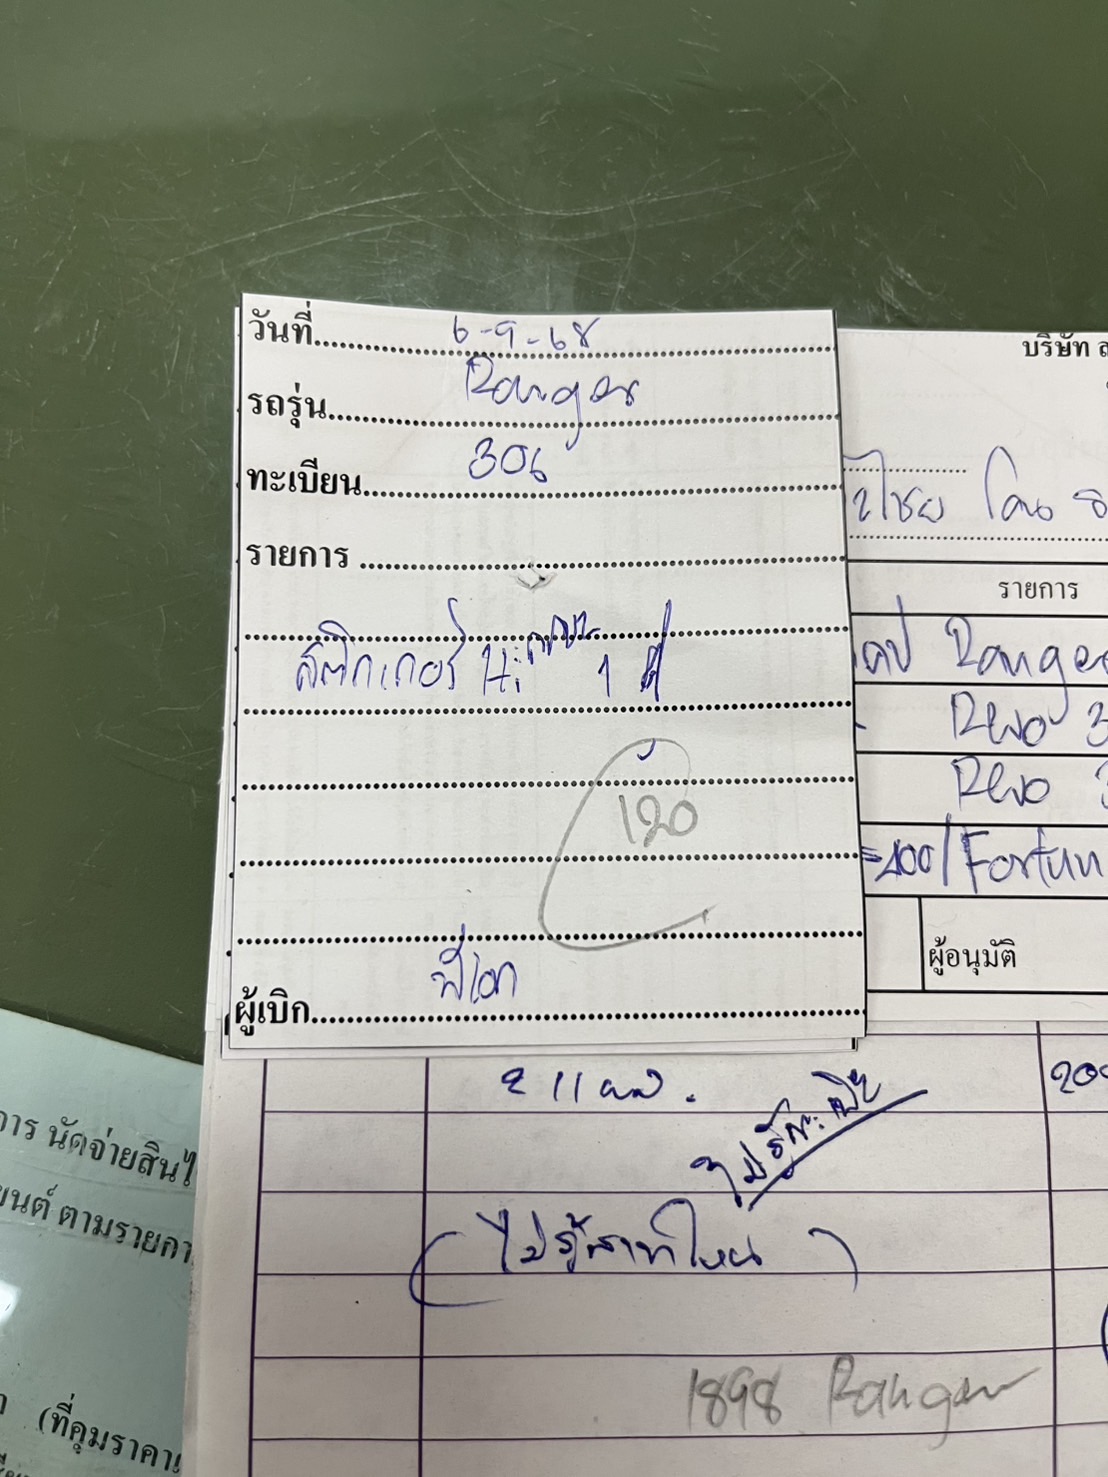 วันที่ 6-9-68
รถรุ่น Ranger
ทะเบียน 306
รายการ
สติกเกอร์ 1
120
ผู้เบิก พี่เอก
บริษัท
โดน
รายการ
Ranger
Revo 3
Revo 3
=400/Fortun
ผู้อนุมัติ
2 แผง.
200
ไม่รู้ทะเบียน
(ไม่รู้สาขาไหน)
1898 Ranger
การ นัดจ่ายสินไ
ยนต์ ตามรายกา
(ที่คุมราคา